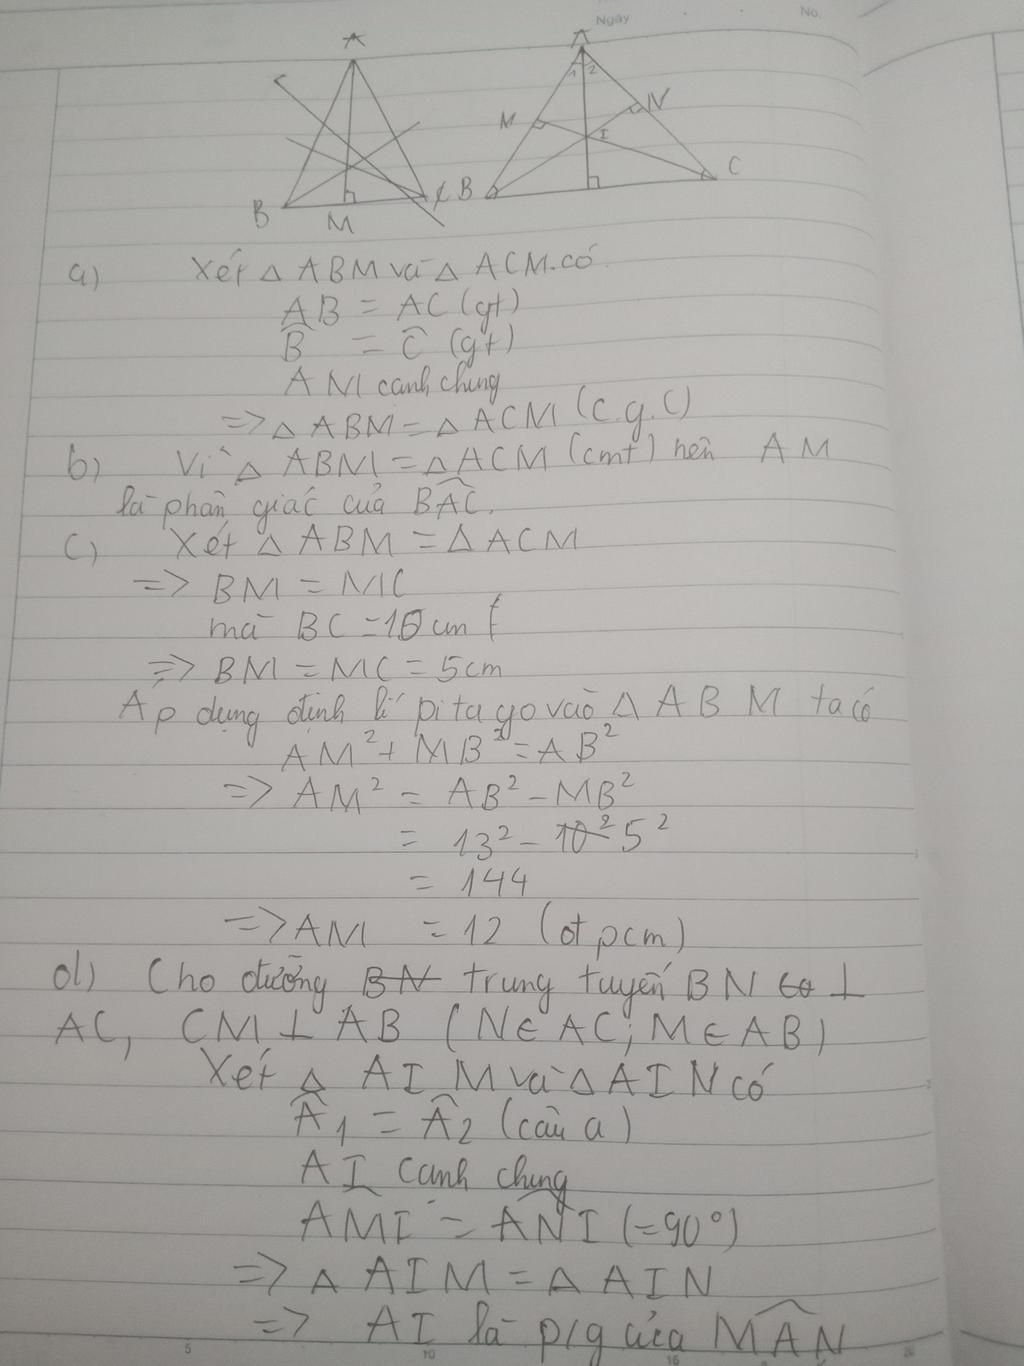 Ngày No.
A A
1 2
M N
I
B M C B C
a) Xét △ ABM và △ ACM có
AB = AC (gt)
B̂ = Ĉ (gt)
AM cạnh chung
=> △ ABM = △ ACM (c.g.c)
b) Vì △ ABM = △ ACM (cmt) nên AM
là phân giác của BAC.
c) Xét △ ABM = △ ACM
=> BM = MC
mà BC = 10 cm
=> BM = MC = 5cm
Áp dụng định lí pitago vào △ ABM ta có
AM² + MB² = AB²
=> AM² = AB² - MB²
= 13² - 10² 5²
= 144
=> AM = 12 (đtpcm)
d) Cho đường BN trung tuyến BN ⊥
AC, CM ⊥ AB (N∈ AC; M∈ AB)
Xét △ AIM và △ AIN có
Â1 = Â2 (câu a)
AI cạnh chung
AMI = ANI (=90°)
=> △ AIM = △ AIN
=> AI là p/g của MAN
5 10 15 20